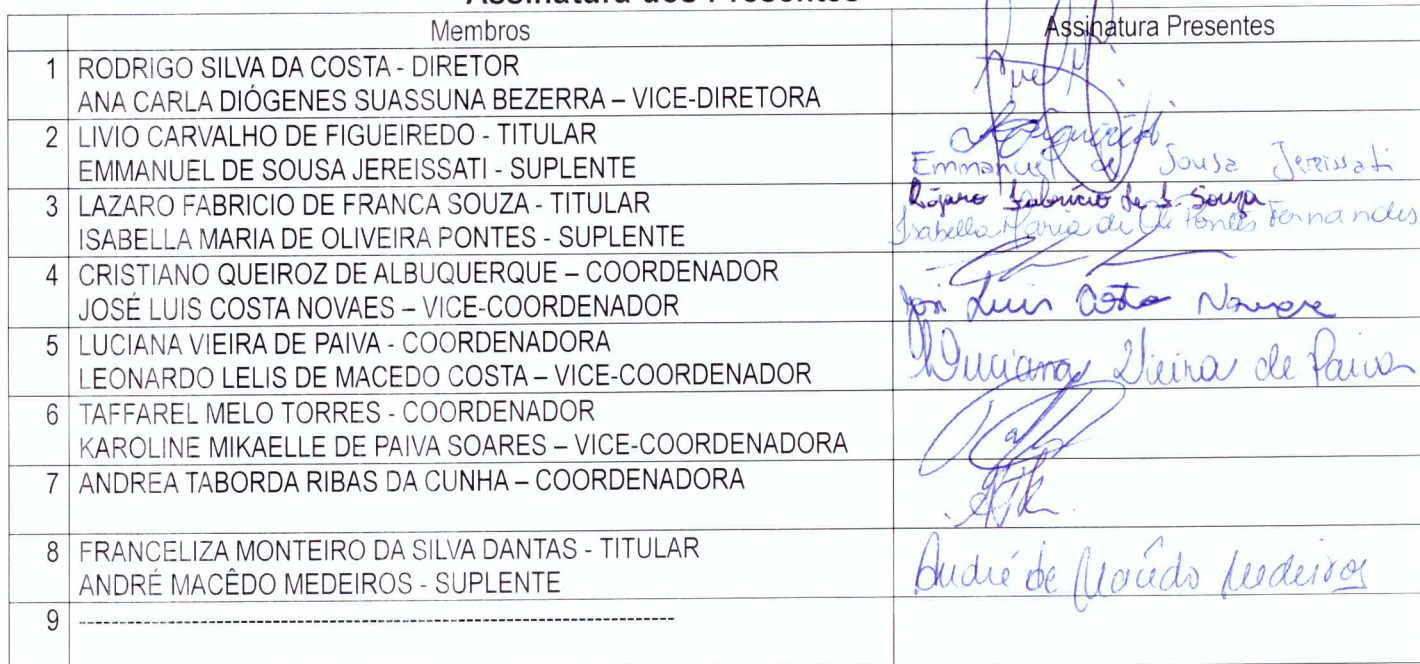 Assinatura dos Presentes
Membros Assinatura Presentes
1 RODRIGO SILVA DA COSTA - DIRETOR
ANA CARLA DIÓGENES SUASSUNA BEZERRA – VICE-DIRETORA
2 LIVIO CARVALHO DE FIGUEIREDO - TITULAR
EMMANUEL DE SOUSA JEREISSATI - SUPLENTE Emmanuel de Sousa Jereissati
3 LAZARO FABRICIO DE FRANCA SOUZA - TITULAR Lázaro Fabrício de F. Souza
ISABELLA MARIA DE OLIVEIRA PONTES - SUPLENTE Isabella Maria de Oli Pontes Fernandes
4 CRISTIANO QUEIROZ DE ALBUQUERQUE – COORDENADOR
JOSÉ LUIS COSTA NOVAES – VICE-COORDENADOR José Luis Costa Novaes
5 LUCIANA VIEIRA DE PAIVA - COORDENADORA Luciana Vieira de Paiva
LEONARDO LELIS DE MACEDO COSTA – VICE-COORDENADOR
6 TAFFAREL MELO TORRES - COORDENADOR
KAROLINE MIKAELLE DE PAIVA SOARES – VICE-COORDENADORA
7 ANDREA TABORDA RIBAS DA CUNHA – COORDENADORA
8 FRANCELIZA MONTEIRO DA SILVA DANTAS - TITULAR
ANDRÉ MACÊDO MEDEIROS - SUPLENTE André de Macêdo Medeiros
9 ----------------------------------------------------------------------